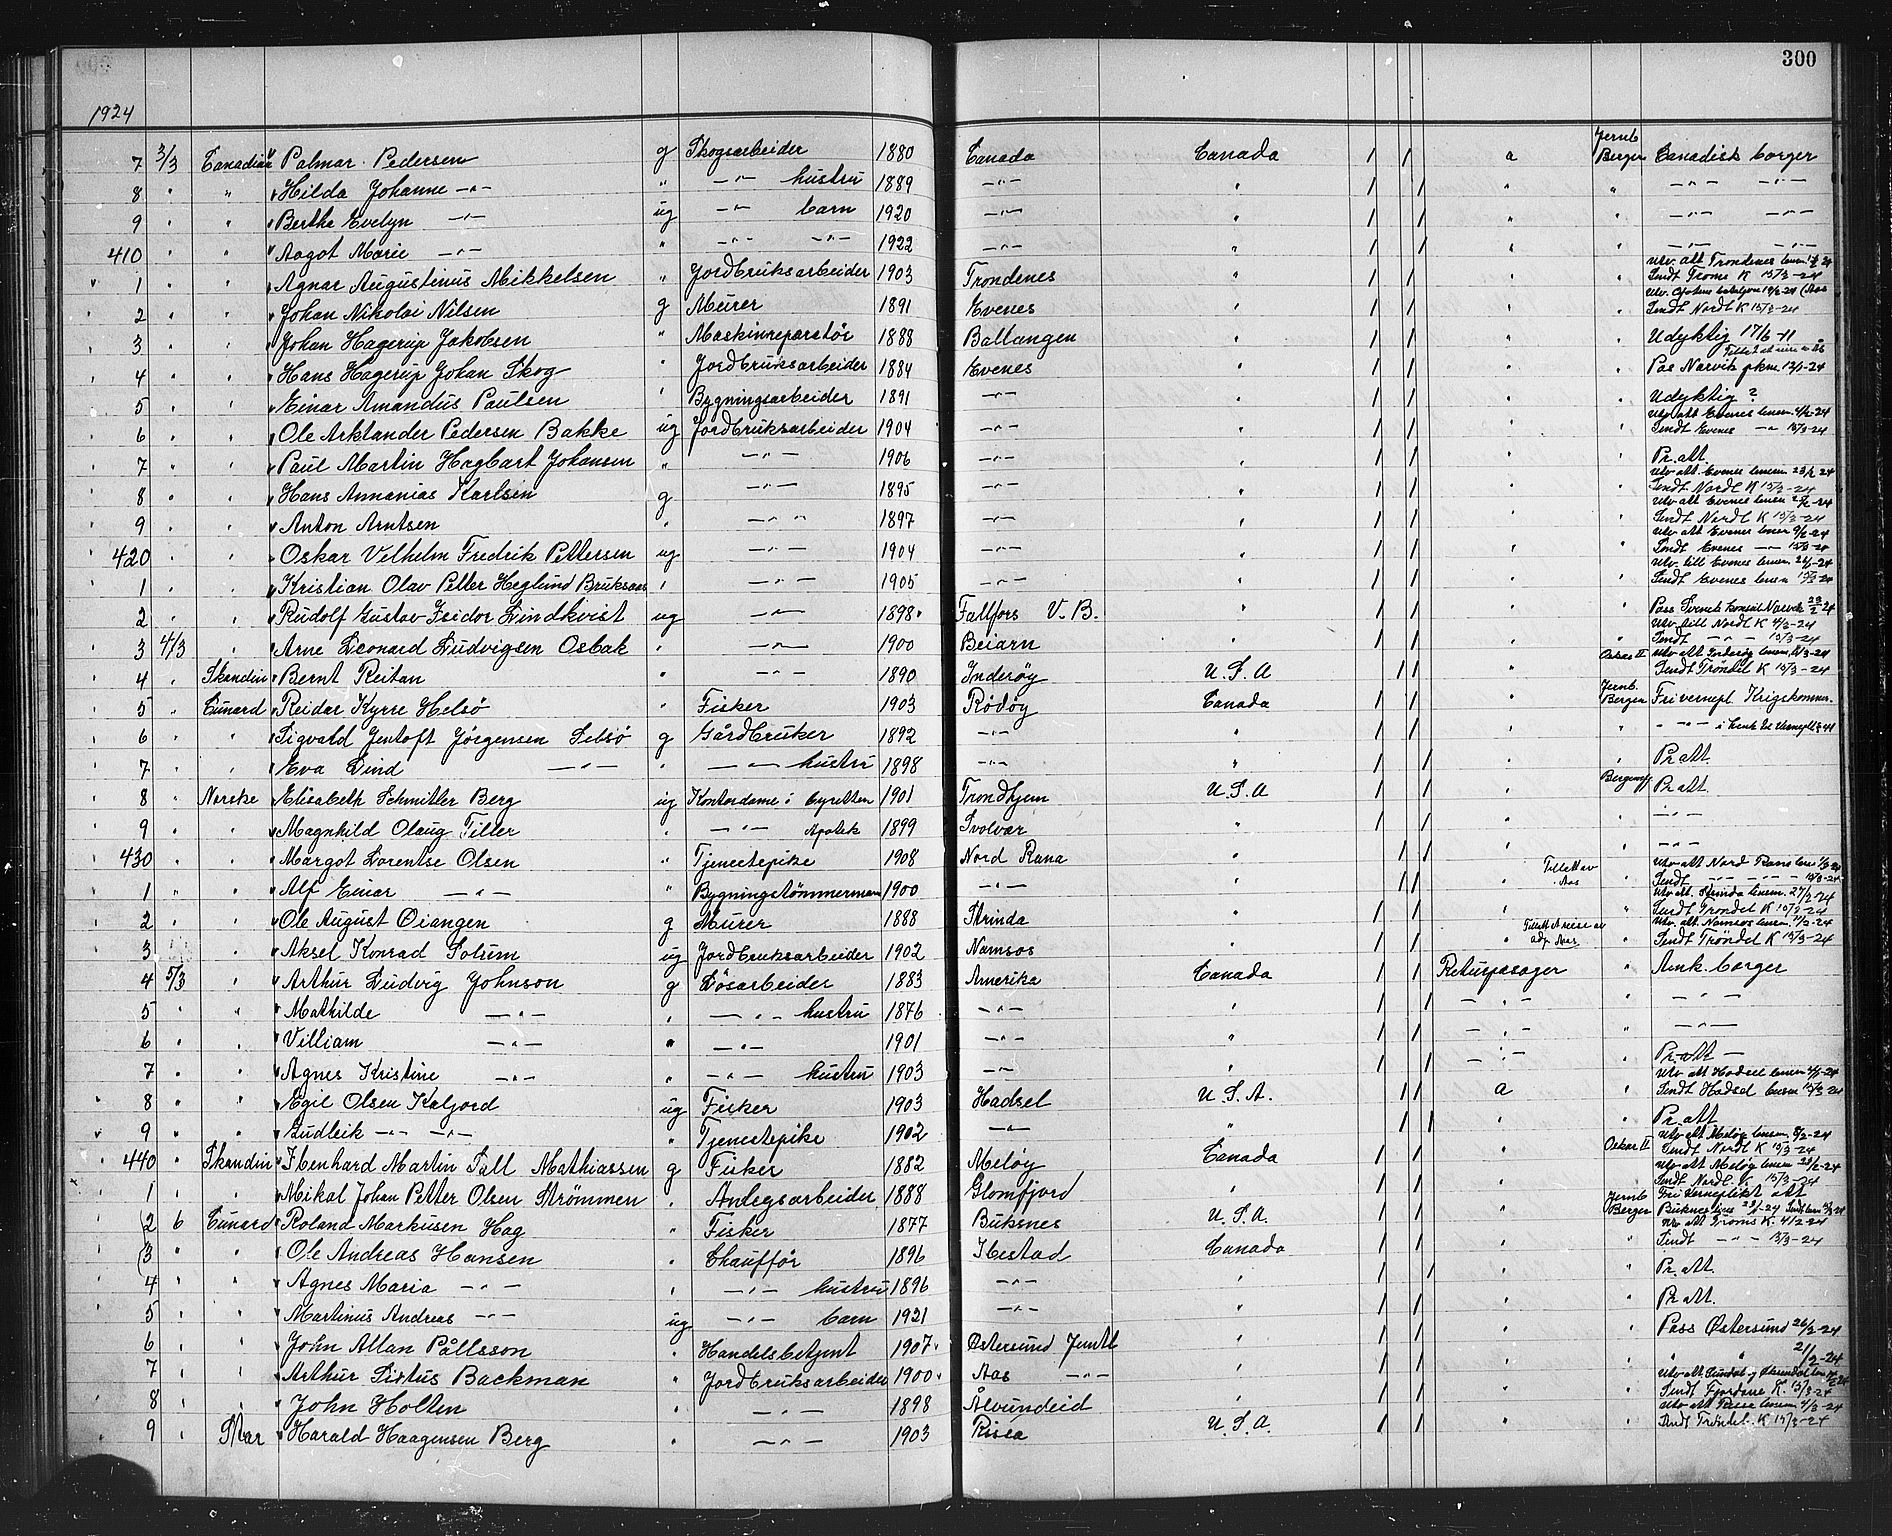 300
1924
7 3/3 Canadian Palmar Pedersen g Skogsarbeider 1880 Canada Canada / / a Jernb Berger Canadisk borger
8 " " Hilda Johanne -"- " -"- hustru 1889 -"- " / / " " -"- -"-
9 " " Berthe Evelyn -"- ug -"- barn 1920 -"- " / / " " -"- -"-
410 " " Aagot Marie -"- " -"- -"- 1922 -"- " / / " " -"- -"-
1 " " Agnar Augustinus Mikkelsen " Jordbruksarbeider 1903 Trondenes " / / " " Utv. att Trondenes lensm Sendt Troms K 15/3-24
2 " " Johan Nikolai Nilsen g Murer 1891 Evenes " / / " " Sendt Nordl K 15/3-24
3 " " Johan Hagerup Jakobsen " Maskinreparatør 1888 Ballangen " / / " " Udyktig 17/6-11
4 " " Hans Hagerup Johan Skog " Jordbruksarbeider 1884 Evenes " / / " " Pas Narvik pkm 12/3-24
5 " " Einar Amandus Paulsen " Bygningsarbeider 1891 -"- " / / " " Udyktig ?
6 " " Ole Arktander Pedersen Bakke ug Jordbruksarbeider 1904 -"- " / / " " Utv att Evenes lensm 4/2-24 Sendt Evenes -"- 15/3-24
7 " " Paul Martin Hagbart Johansen " -"- 1906 -"- " / / " " Pr. att
8 " " Hans Annanias Karlsen g -"- 1895 -"- " / / " " Utv att. Evenes lensm 23/2 24 Sendt Nordl K 15/3-24
9 " " Anton Arntsen " -"- 1897 -"- " / / " " Utv att Evenes lensm Sendt Nordl K 15/3-24
420 " " Oskar Vilhelm Fredrik Pettersen ug -"- 1904 -"- " / / " " Utv att Evenes lensm 9/2-24 Sendt Evenes -"- 15/3-24
1 " " Kristian Olav Petter Heglund Bruksaas " -"- 1905 -"- " / / " " Utv till Evenes lensm Sendt Evenes lensm 15/3-24
2 " " Rudolf Gustav Isidor Lindkvist ug -"- 1898 Fallfors V.B. " / / " " Pass Svensk konsul Narvik 23/2 24
3 4/3 " Arne Leonard Ludvigsen Osbak " -"- 1900 Beiarn " / / " " Utv till Nordl K 4/2-24 Sendt -"- 15/3-24
4 " Skandin Bernt Reitan " -"- 1890 Inderøy U.S.A / / " Oscar II Utv att Inderøy lensm Sendt Trøndel K 15/3-24
5 " Cunard Reidar Kyrre Helsø " Fisker 1903 Rødøy Canada / / " Jernb. Berger Fri vernepl Krigskommis.
6 " " Sigvald Jentoft Jørgensen Selsø g Gårdbruker 1892 -"- " / / " " -"-
7 " " Eva Lind -"- " -"- hustru 1898 -"- " / / " " Pr att
8 " Norske Elisabeth Schmitler Berg ug Kontordame i byretten 1901 Trondhjem U.S.A / / " Bergensfj Pr att.
9 " " Magnhild Olaug Tiller " -"- Apotek 1899 Svolvær " / / " " -"-
430 " " Margot Lorentse Olsen " Tjenestepike 1908 Nord Rana " / / " " -"-
1 " " Alf Einar -"- " Bygningstømmermann 1900 -"- " / / Tillatt av Aas " Utv att Nord Rana lensm 1/3-24 Sendt -"- 15/3-24
2 " " Ole August Øiangen g Murer 1888 Strinda " / / " " Utv att. Strinda lensm. 27/2-24 Sendt Trøndel K 15/3-24
3 " " Aksel Konrad Solum ug Jordbruksarbeider 1902 Namsos " / / Tillatt at reise av adj. Aas " Utv. att Namsos lensm 11/2-24 Sendt Trøndel K 15/3-24
4 5/3 " Arthur Ludvig Johnson g Løsarbeider 1883 Amerika Canada / / Returpasager " Amk. borger
5 " " Mathilde -"- " -"- hustru 1876 -"- " / / -"- " -"-
6 " " Villiam -"- " -"- 1901 -"- " / / -"- " -"-
7 " " Agnes Kristine -"- " -"- hustru 1903 -"- " / / -"- " Pr-att -
8 " " Egil Olsen Kaljord ug Fisker 1903 Hadsel U.S.A. / / a " Utv att Hadsel lensm Sendt Hadsel lensm 15/3 24
9 " " Gudleik -"- -"- " Tjenestepike 1902 -"- " / / " " Pr. att
440 " Skandin Ibenhard Martin Sall Mathiassen g Fisker 1882 Meløy Canada / / " Oscar II Utv att Meløy lensm. 8/2-24 Sendt Nordl K 15/3-24
1 " " Mikal Johan Petter Olsen Strømmen " Anlegsarbeider 1888 Glomfjord " / / " " Utv att Meløy lensm Sendt Nordl. K. 15/3-24
2 6 Cunard Roland Markusen Hag " Fisker 1877 Buksnes U.S.A. / / " Jernb Berger Fri Verneplikt att Buksnes
3 " " Ole Andreas Hansen " Chauffør 1896 Ibestad Canada / / " " Utv att Troms K. 4/2-24 Sendt -"- 15/3-24
4 " " Agnes Maria -"- " -"- hustru 1896 -"- " / / " " Pr. att.
5 " " Martinus Andreas -"- ug -"- barn 1921 -"- " / / " " Pr att.
6 " " John Allan Pållsson " Handelsbetjent 1907 Østersund Jemtl " / / " " Pass Østersund 26/2-24
7 " " Arthur Sixtus Backman " Jordbruksarbeider 1900 Aas -"- " / / " " " " 21/2-24
8 " " John Holten " -"- 1898 Ålvundeid " / / " " Sendt Fjordane K. 15/3-24
9 " Star Harald Haagensen Berg " -"- 1903 Rissa U.S.A. / / " " Utv att Rissa lensm. 4/3-24 Sendt Trøndel. K 15/3-24